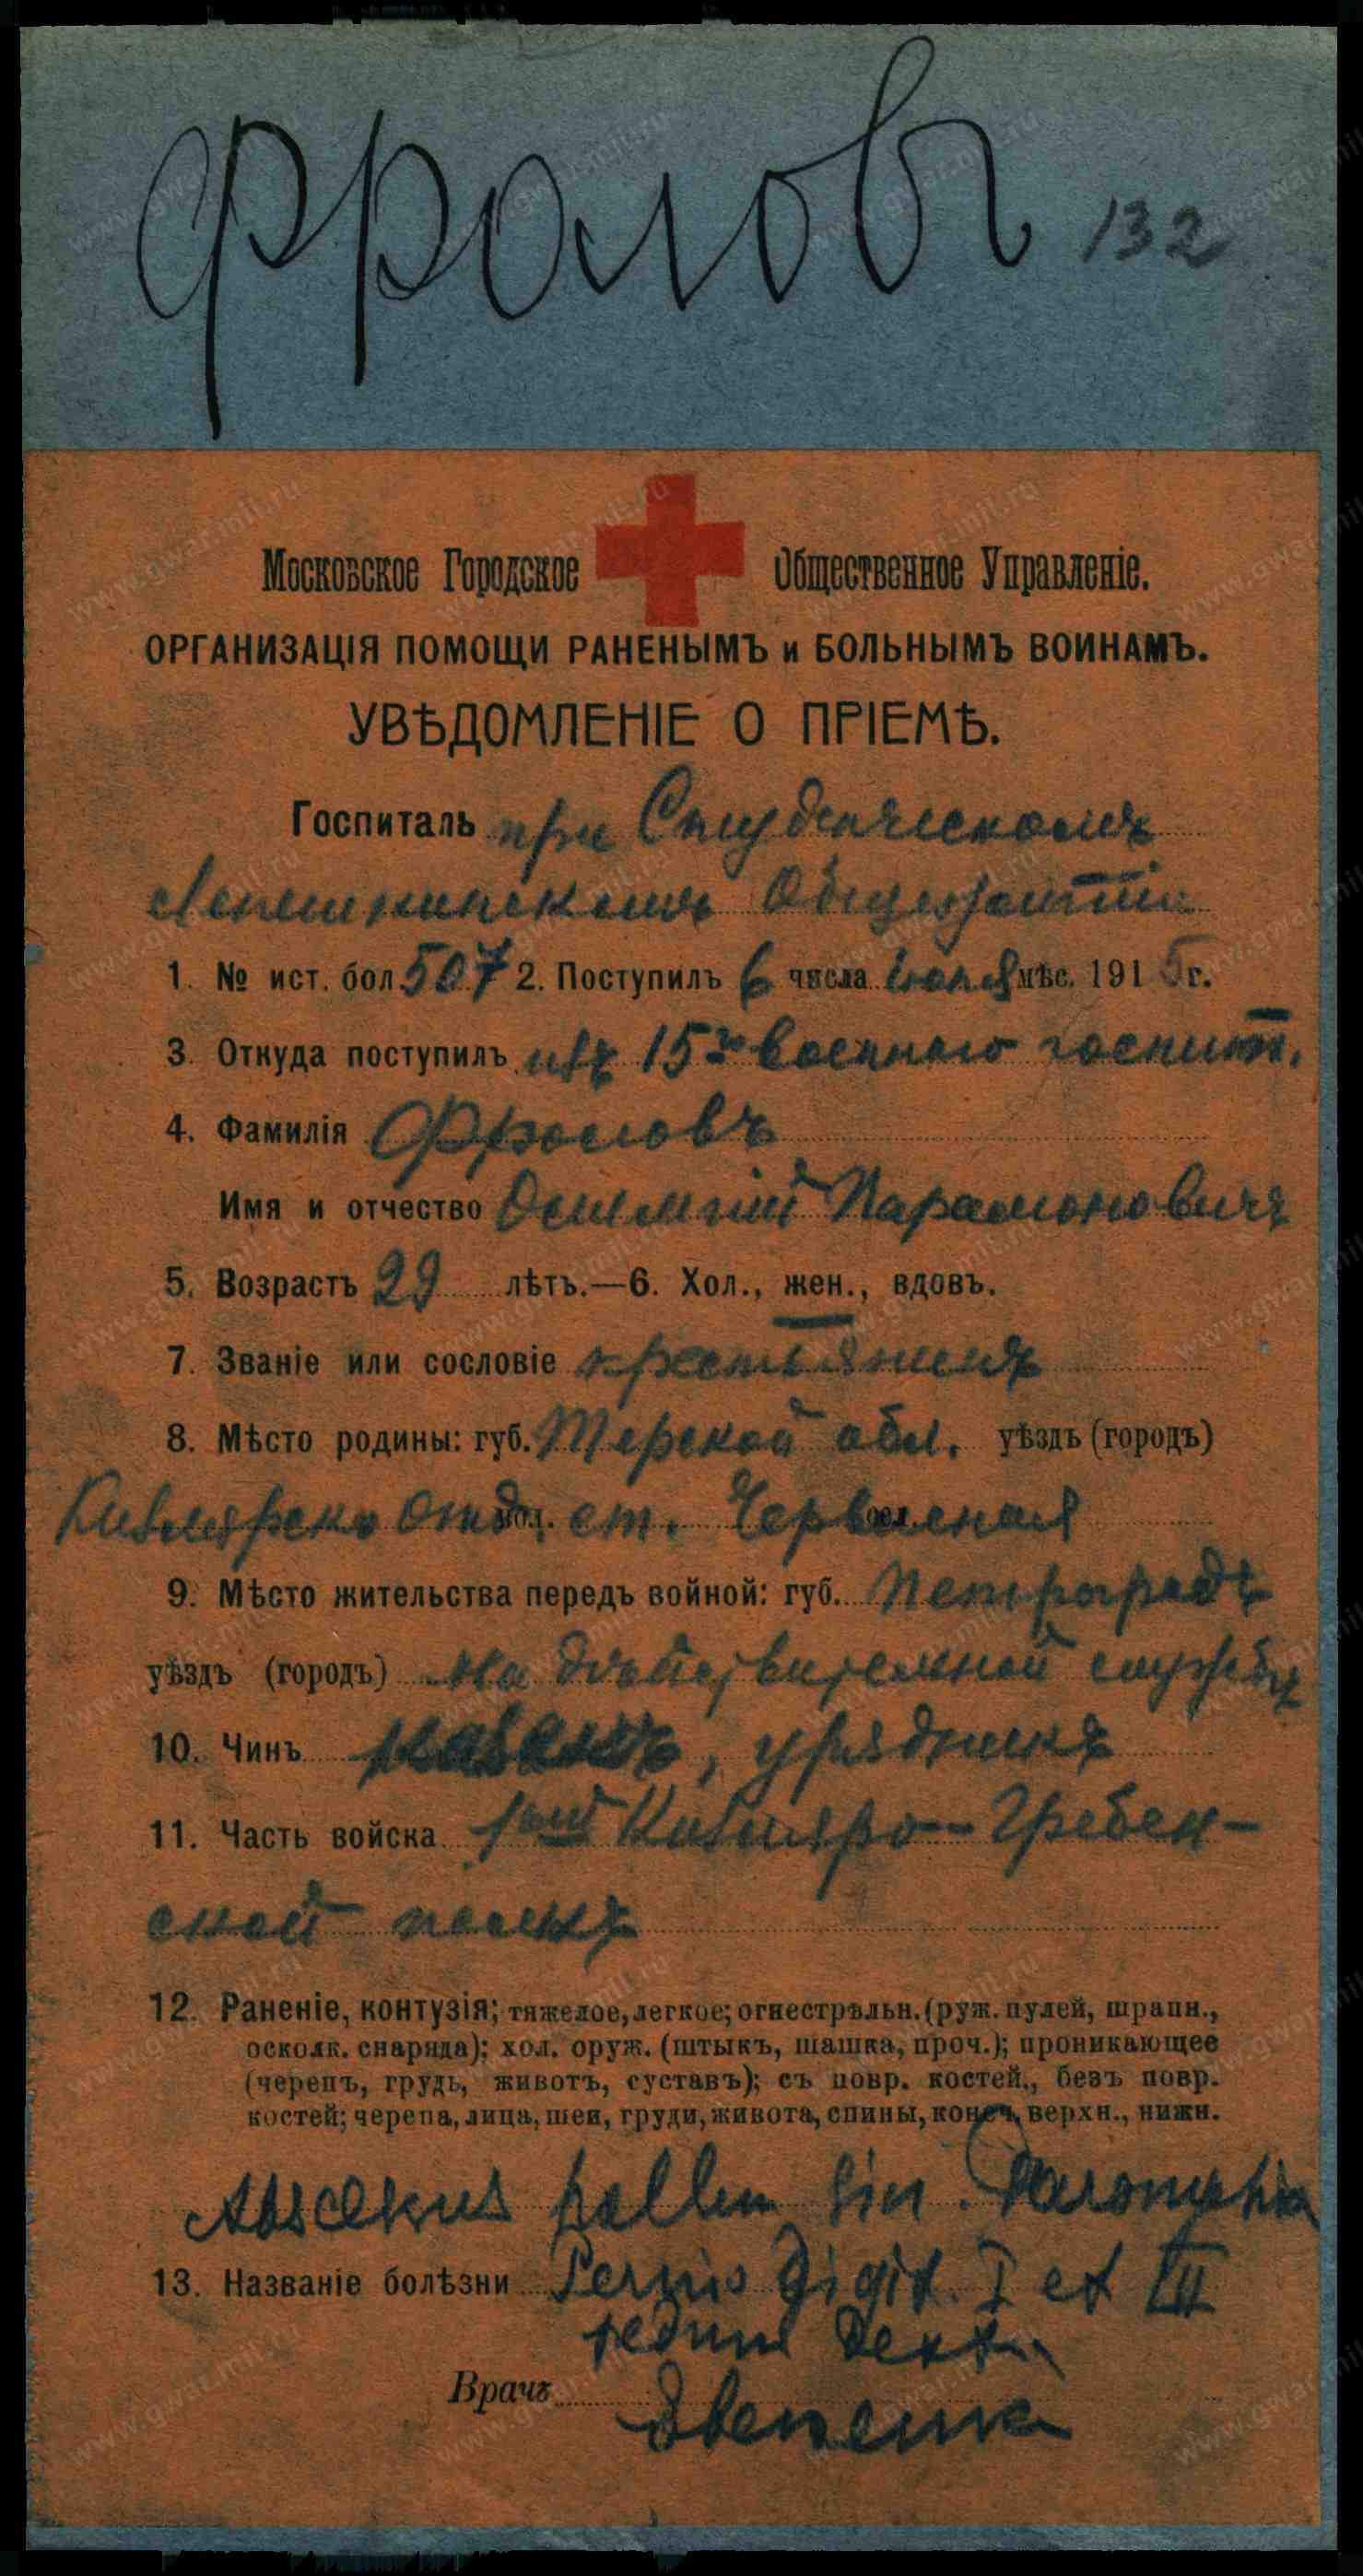 Фроловъ 132
Московское Городское Общественное Управленіе.
ОРГАНИЗАЦІЯ ПОМОЩИ РАНЕНЫМЪ и БОЛЬНЫМЪ ВОИНАМЪ.
УВѢДОМЛЕНІЕ О ПРІЕМѢ.
Госпиталь при Студенческомъ
Лепешкинскомъ Общежитіи
1. № ист. бол. 507 2. Поступилъ 6 числа мѣс. 1915 г.
3. Откуда поступилъ изъ 15го военнаго госпит.
4. Фамилія Фроловъ
Имя и отчество Парамоновичъ
5. Возрастъ 29 лѣтъ.—6. Хол., жен., вдовъ.
7. Званіе или сословіе
8. Мѣсто родины: губ. Терской обл. уѣздъ (городъ)
Кизлярск. отд. вол. ст. Червленая сел.
9. Мѣсто жительства передъ войной: губ. Петроградъ
уѣздъ (городъ) на дѣйствительной службѣ
10. Чинъ казакъ, урядникъ
11. Часть войска 1ый Кизляро-Гребен-
ской полкъ
12. Раненіе, контузія; тяжелое, легкое; огнестрѣльн. (руж. пулей, шрапн.,
осколк. снаряда); хол. оруж. (штыкъ, шашка, проч.); проникающее
(черепъ, грудь, животъ, суставъ); съ повр. костей., безъ повр.
костей; черепа, лица, шеи, груди, живота, спины, конеч. верхн., нижн.
Abscessus sin. Paronychia
13. Названіе болѣзни Pernio digit. I et III
pedum dextr.
Врачъ
www.gwar.mil.ru